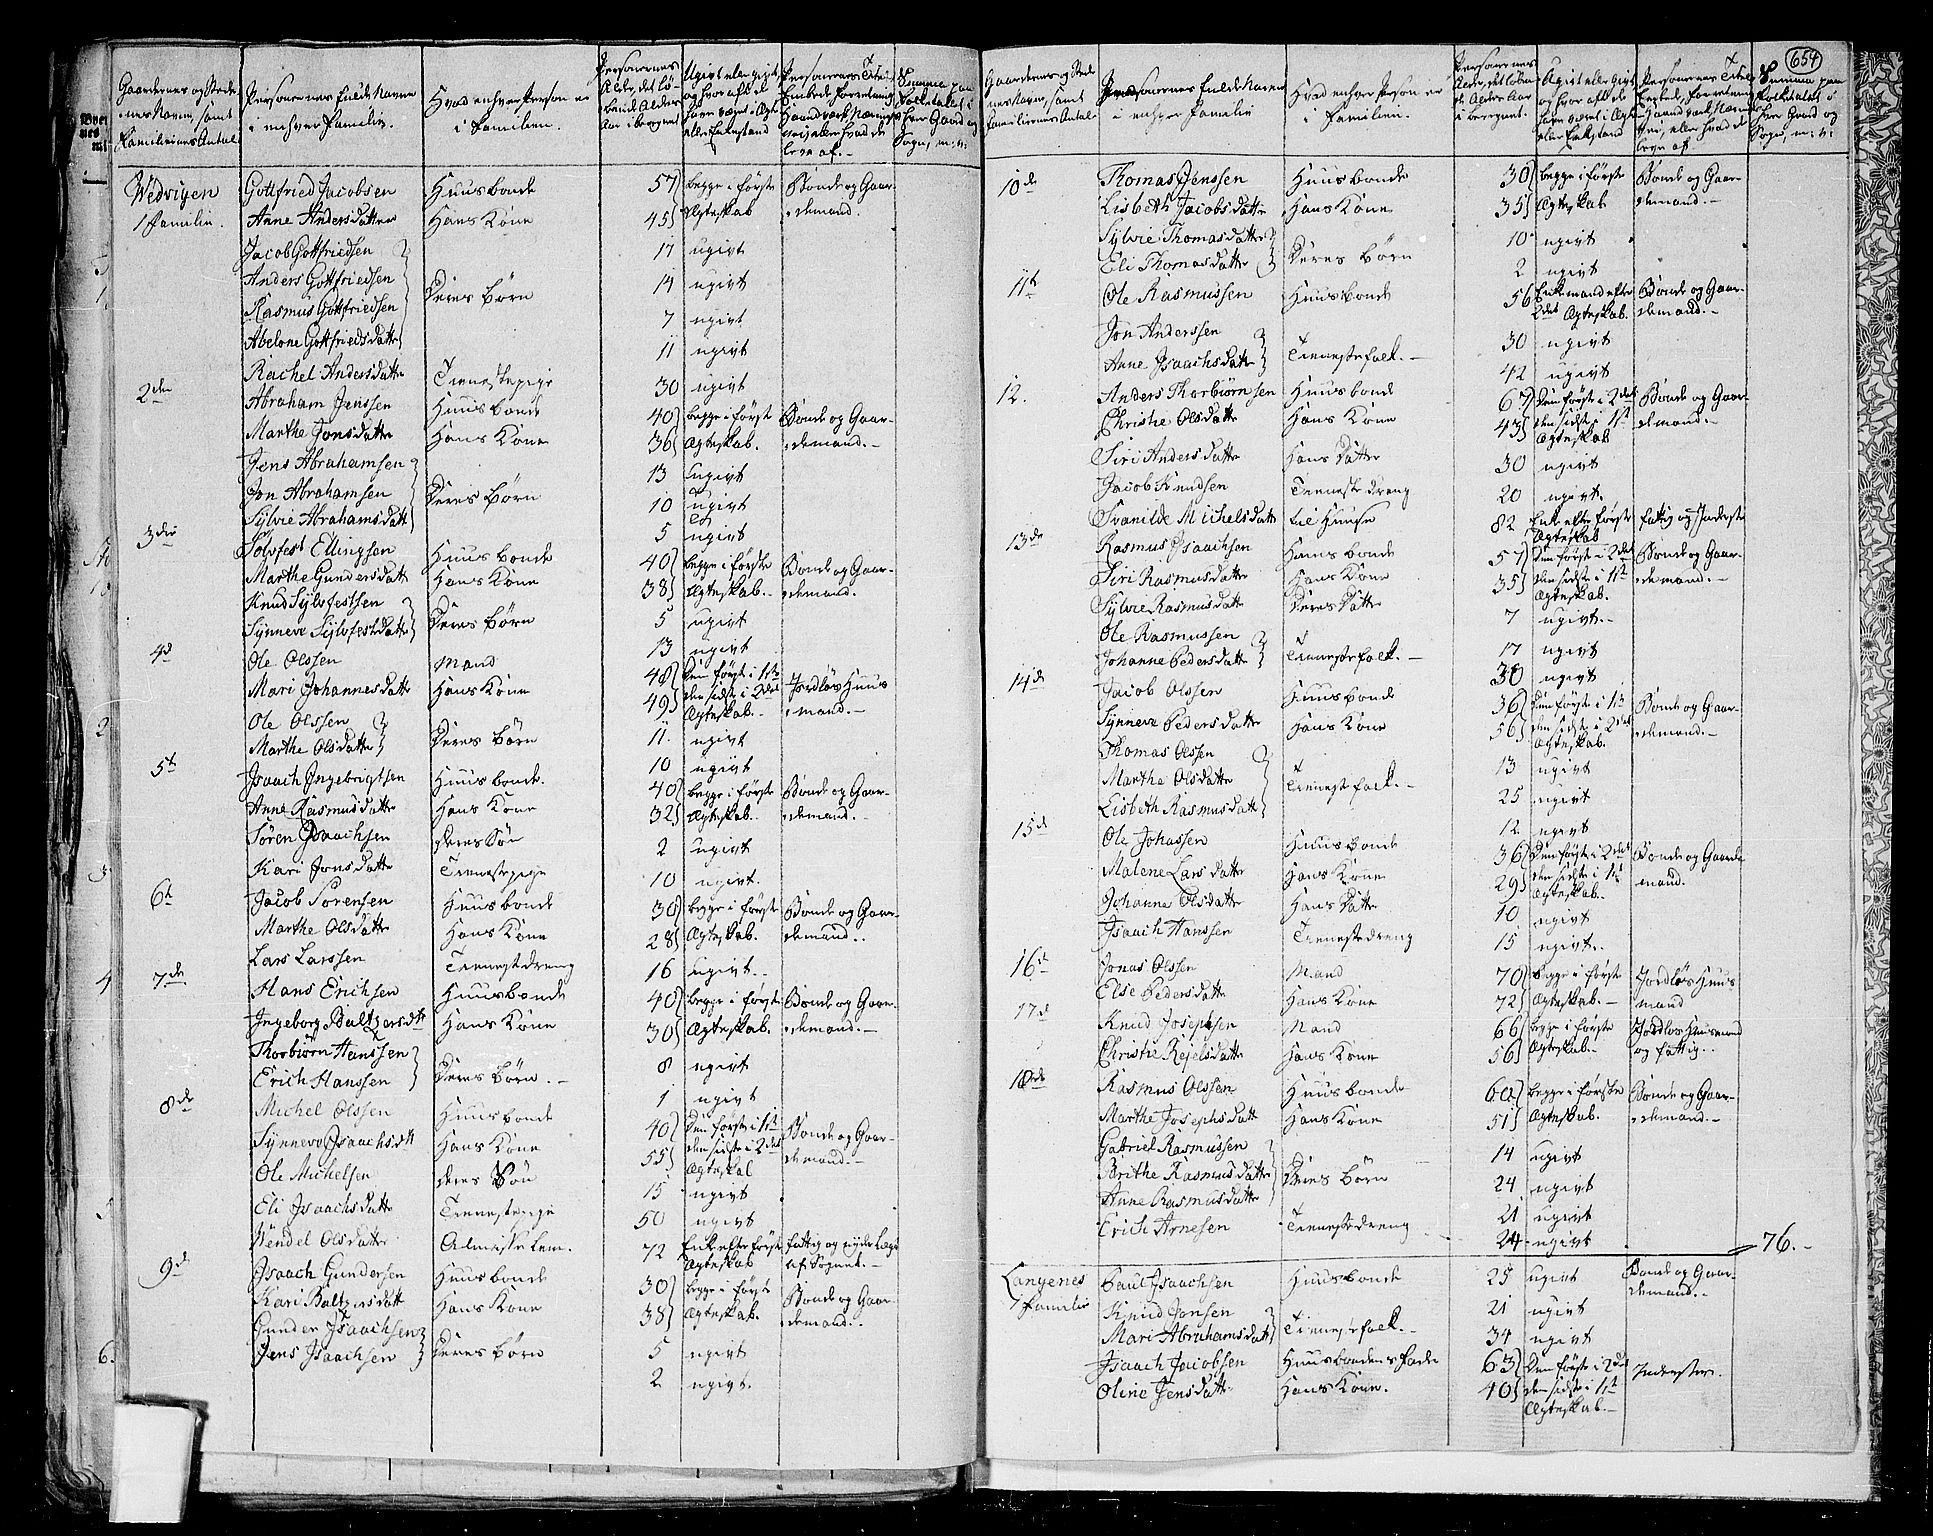 654
Gaardenes og Stedernes Navn, samt Familiernes Antal
Personernes fulde Navne i enhver Familie.
Hvad enhver Person er i Familien.
Personernes Alder, det løbende Alders Aar iberegnet
Ugivt eller givt, og hvor ofte de have været i Ægte- eller Enkestand
Personernes Titel, Embede, Forretning, Haandværk, Næringsvei, eller hvad de leve af.
Summa paa Folketallet i hver Gaard og Sogn, m: v:
Wedvigen Gottfried Jacobsen Huusbonde 57 begge i første Bonde og Gaar-
1 familie. Anne Andersdatter Hans Kone 45 Ægteskab demand.
Jacob Gottfriedsen 17 ugivt
Anders Gottfriedsen Deres Børn 14 ugivt
Rasmus Gottfriedsen 7 ugivt
Abelone Gottfriedsdatte 11 ugivt
Rachel Andersdatte Tienestepige 30 ugivt
2den Abraham Jenssen Huusbonde 40 begge i første Bonde og Gaar-
Marthe Jonsdatte Hans Kone 36 Ægteskab. demand.-
Jens Abrahamsen 13 ugivt
Jon Abrahamsen Deres Børn 10 ugivt
Sylvie Abrahamsdatt 5 ugivt
3die Sølvfest Ellingsen Huusbonde 40 begge i første Bonde og Gaar-
Marthe Gundersdatt Hans Kone 38 Ægteskab. demand.
Knud Sylvfestsen Deres Børn 5 ugivt
Synneve Sylvfestdatte 13 ugivt
4d Ole Olssen Mand 48 Den første i 1ste Jordløs Huus
Mari Johannesdatte Hans Kone 49 den sidste i 2det mand.-
Ægteskab.
Ole Olssen Deres Børn 11. ugivt
Marthe Olsdatte 10 ugivt
5t Isaach Ingebrigtsen Huusbonde. 40 begge i første Bonde og Gaar-
Anne Rasmusdatte Hans Kone 32 Ægteskab. demand.-
Søren Isaachsen deres Søn 2 ugivt
Kari Jonsdatte Tienestepige 10 ugivt.
6t Jacob Sørensen Huusbonde 30 begge i første Bonde og Gaar-
Marthe Olsdatte Hans Kone 28 Ægteskab. demand..
Lars Larssen Tienestdreng 16 ugivt.
7de Hans Erichsen Huusbonde 40 begge i første Bonde og Gaar-
Ingeborg Baltzersdt Hans Kone 30 Ægteskab. demand.-
Thorbiørn Hanssen Deres Børn.- 8 ugivt
Erich Hanssen 1 ugivt
8de Michel Olssen Huusbonde 40 Den første i 1ste Bonde og Gaar-
Synneve Isaachsdt Hans Kone 55 den sidste i 2det demand.-
Ægteskab
Ole Michelsen deres Søn 15 ugivt
Eli Isaachsdatte Tienestepige 50 ugivt
Wendel Olsdatte Almisselem. 72 Enke efter første fattig og nyder Lægd
Ægteskab af Sognet.-
9d Isaach Gundersen Huusbonde 30 begge i første Bonde og Gaar-
Kari Baltzersdatt Hans Kone 38 Ægteskab. demand..
Gunder Isaachsen Deres Børn 5 ugivt
Jens Isaachsen 2 ugivt.
Gaardenes og Stedernes Navn, samt Familiernes Antal
Personernes fulde Navne i enhver Familie
Hvad enhver Person er i Familien.
Personernes Alder, det løbende Alders Aar iberegnet
Ugivt eller givt, og hvor ofte de have været i Ægte- eller Enkestand
Personernes Titel, Embede, Forretning, Haandværk, Næringsvei, eller hvad de leve af
Summa paa Folketallet i hver Gaard og Sogn, m: v:
10de Thomas Jenssen Huusbonde 30 begge i første Bonde og Gaar-
Lisbeth Jacobsdatte Hans Kone 35 Ægteskab demand.-
Sylvie Thomasdatte Deres Børn 10 ugivt
Eli Thomasdatte 2 ugivt
11te Ole Rasmussen Huusbonde 56 Enkemand efter Bonde og Gaar-
2det Ægteskab. demand.-
Jon Anderssen Tienestefolk.- 30 ugivt
Anne Isaachsdatte 42 ugivt
12. Anders Thorbiørnsen Huusbonde 67 Den første i 2det Bonde og Gaar-
Christie Olsdatte Hans Kone 43 den sidste i 1st demand.-
Ægteskab
Siri Andersdatte Hans Datte 30 ugivt
Jacob Knudsen Tienestedreng 20 ugivt.
Svanilde Michelsdatt til Huuse 82 Enke efter første fattig og Inderste
Ægteskab
13de Rasmus Isaachsen Huusbonde 57 Den første i 2det Bonde og Gaar-
Siri Rasmusdatte Hans Kone 35 den sidste i 1st demand.-
Ægteskab.
Sylvie Rasmusdatte Deres Datte 7 ugivt.-
Ole Rasmussen Tienestefolk.- 17 ugivt
Johanne Pedersdatte 30 ugivt
14de Jacob Olssen Huusbonde 36 Den første i 1ste Bonde og Gaar-
Synneve Pedersdatte Hans Kone 56 den sidste i 2det demand.-
Ægteskab.
Thomas Olssen 13 ugivt
Marthe Olsdatte Tienestfolk.- 25 ugivt
Lisbeth Rasmusdatt 12 ugivt
15d Ole Johassen Huusbonde 36 Den første i 2det Bonde og Gaarde
Malene Larsdatte Hans Kone 29 den sidste i 1ste mand.
Ægteskab.
Johanne Olsdatte Hans Datte 10 ugivt
Isaach Hanssen Tienestedreng 15 ugivt.
16d Jonas Olssen Mand 70 begge i første Jordløs Huus
Else Pedersdatte Hans Kone 72 Ægteskab.- mand
17d Knud Josephsen Mand 66 begge i første Jordløs Huusmand
Christie Rejelsdatte Hans Kone 56 Ægteskab.- og fattig..
18de Rasmus Olssen Huusbonde 60 begge i første Bonde og Gaar-
Marthe Josephsdatt Hans Kone 51 Ægteskab. demand.-
Gabriel Rasmussen 14 ugivt
Brithe Rasmusdatte Deres Børn 24 ugivt
Anne Rasmusdatte 21 ugivt
Erich Arnesen Tienestedreng 24 ugivt 76.-
Langenes Paul Isaachsen Huusbonde 25 ugivt Bonde og Gaar-
1 familie demand.-
Knud Jonsen Tienestefolk.- 21 ugivt
Mari Abrahamsdatt 34 ugivt
Isaach Jacobsen Huusbondens Fader 63 Den første i 2det Inderster.
Oline Jensdatte Hans Kone. 40 den sidste i 1st
Ægteskab.-